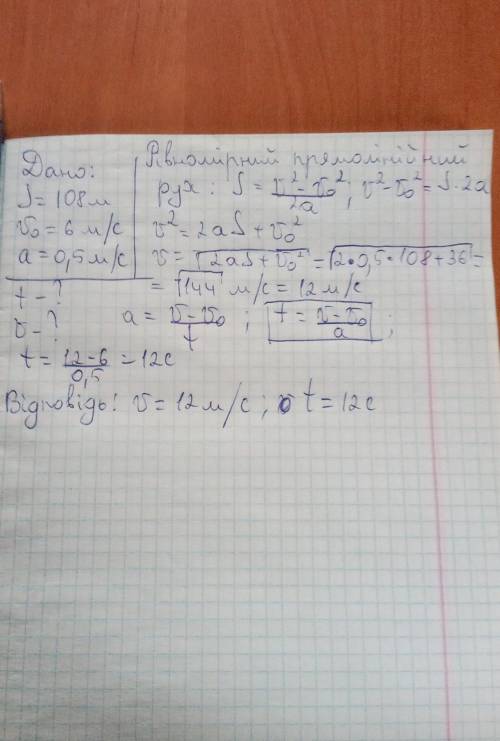 Дано:
S = 108 м
v₀ = 6 м/с
a = 0,5 м/с
t - ?
v - ?
Рівномірний прямолінійний
рух: S = (v² - v₀²)/2a ; v² - v₀² = S · 2a
v² = 2aS + v₀²
v = √(2aS + v₀²) = √(2•0,5•108+36) =
= √144 м/с = 12 м/с
a = (v - v₀)/t ; t = (v - v₀)/a ;
t = (12 - 6)/0,5 = 12с
Відповідь: v = 12 м/с ; t = 12с